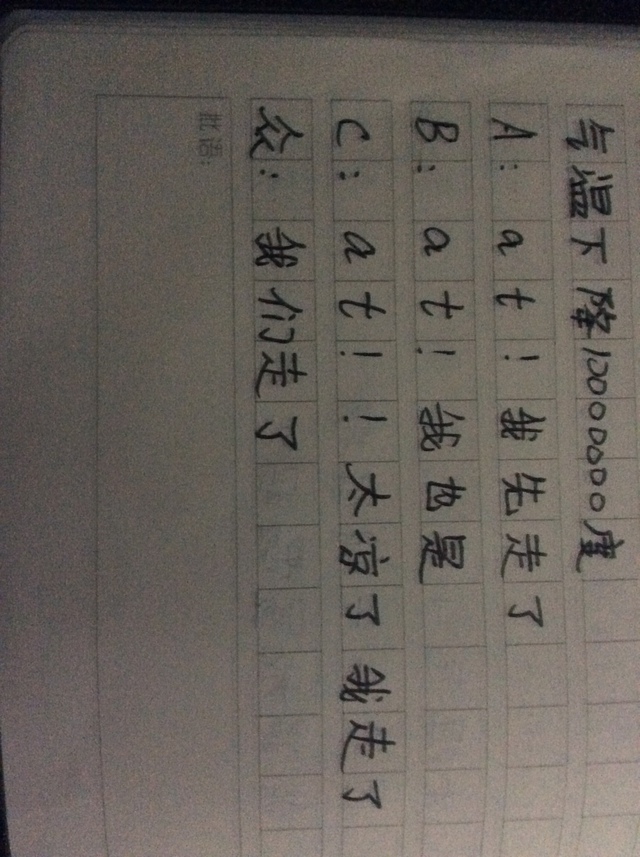 气温下降10000000度
A：at！我先走了
B：at！我也是
C：at！！太凉了 我走了
众：我们走了
批语：